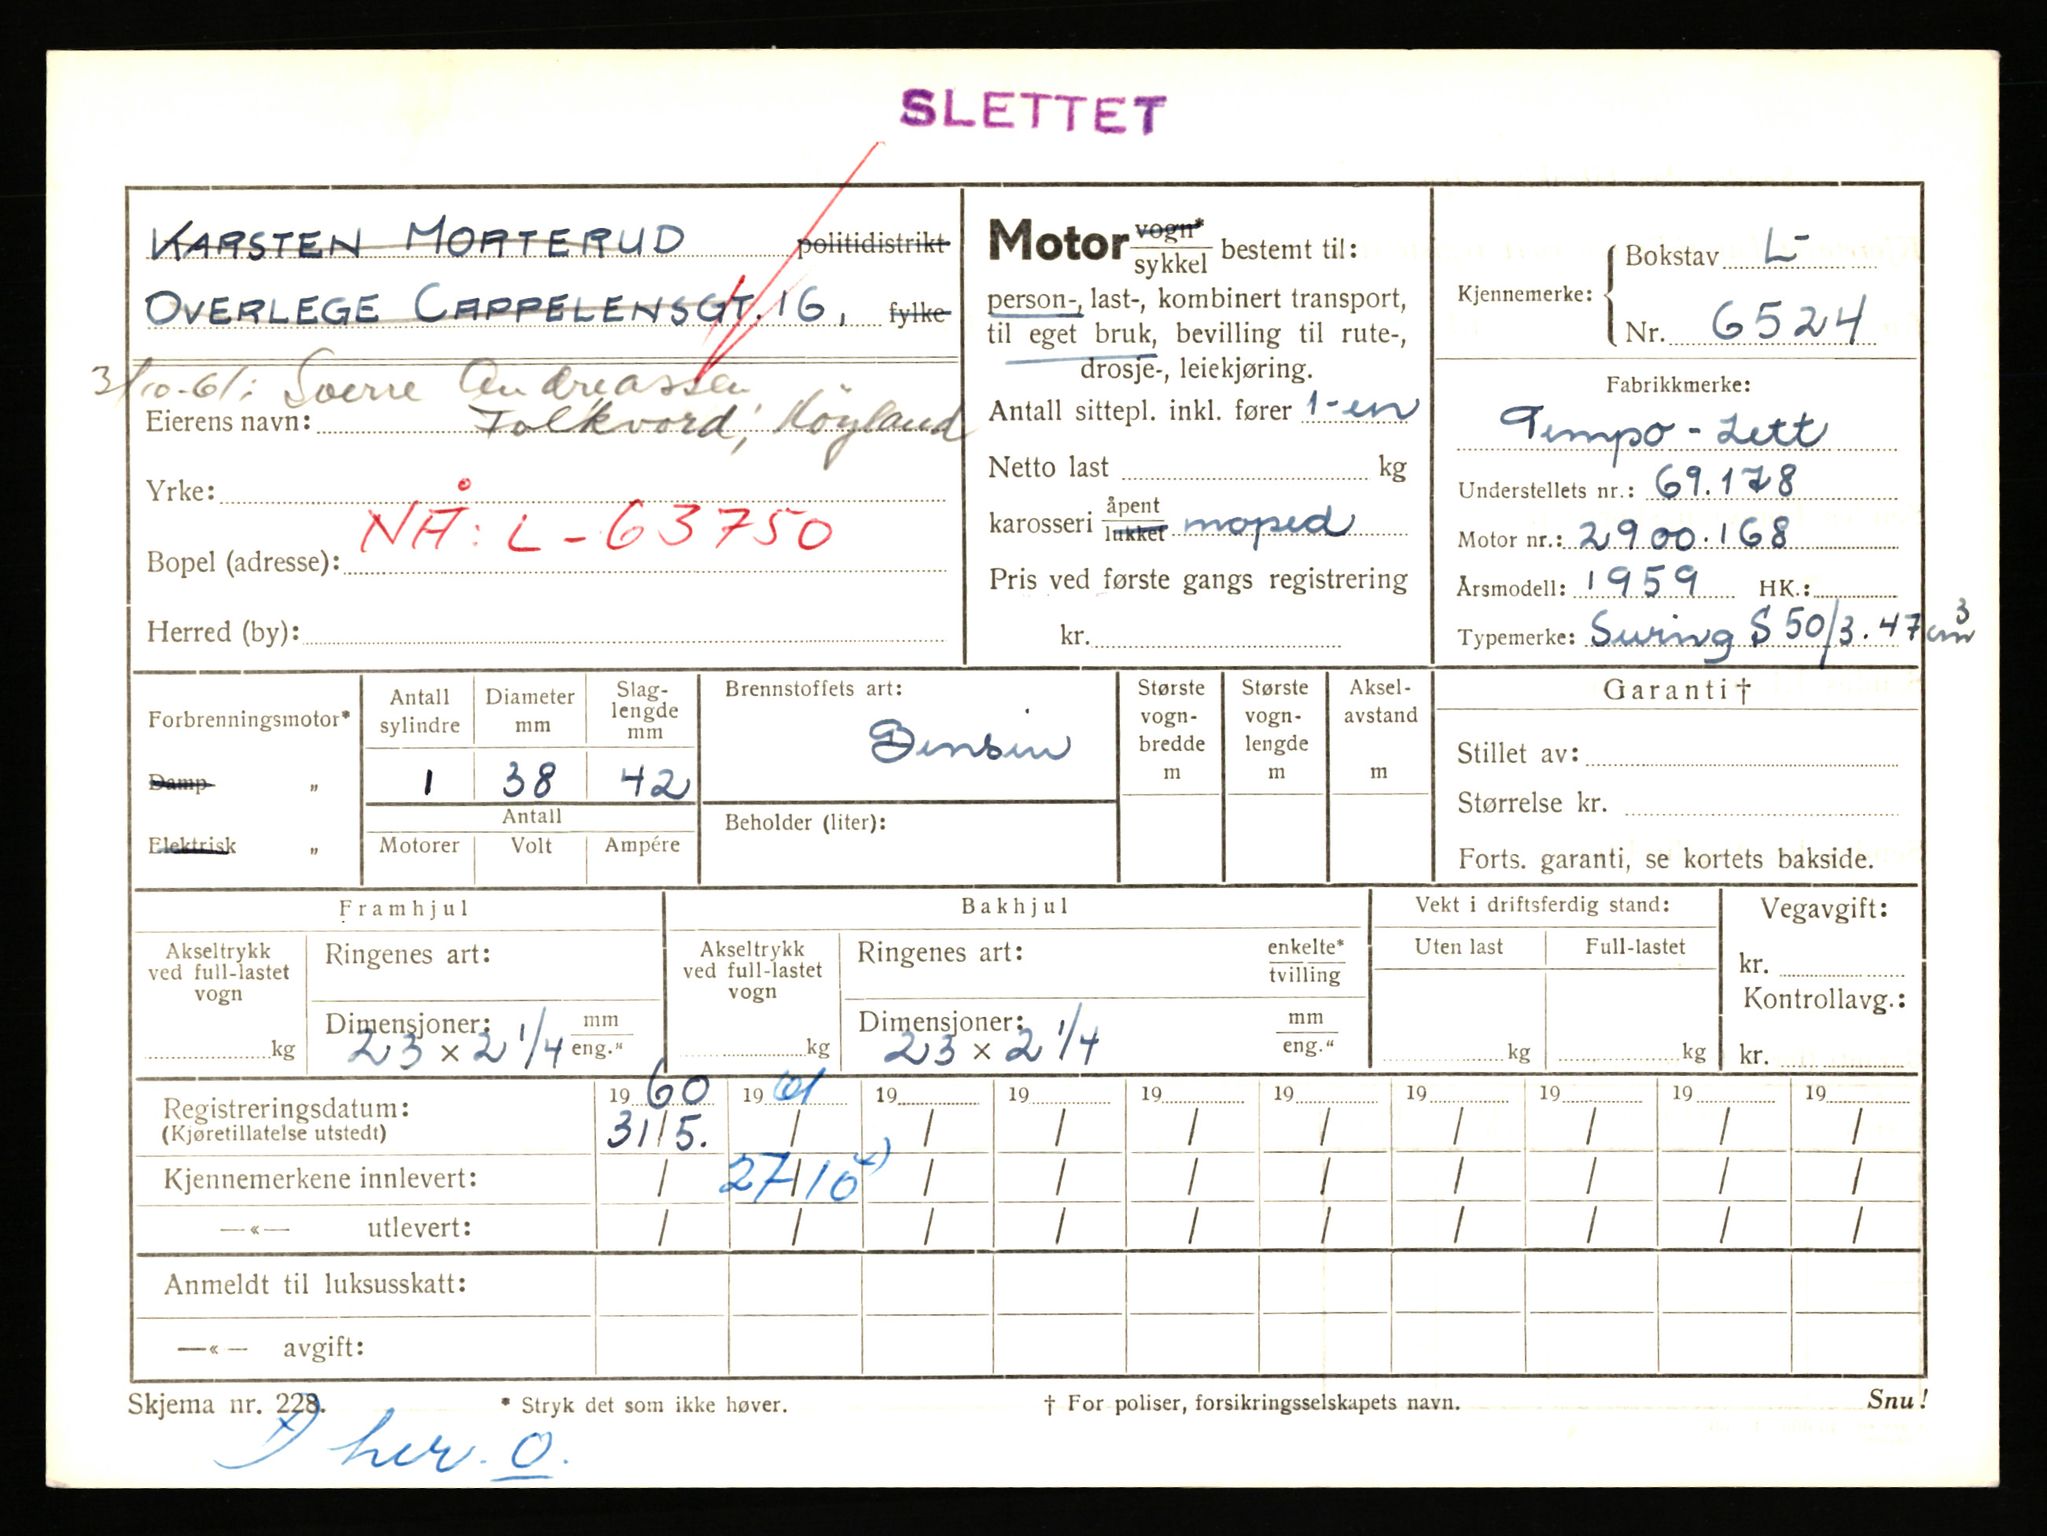 SLETTET
KARSTEN MORTERUD politidistrikt
OVERLEGE CAPPELENSGT. 16, fylke
3/10-61: Sverre Andreassen
Eierens navn: Folkvord, Høyland
Yrke:
NÅ: L-63750
Bopel (adresse):
Herred (by):
Motor vogn* / sykkel bestemt til:
person-, last-, kombinert transport,
til eget bruk, bevilling til rute-,
drosje-, leiekjøring.
Antall sittepl. inkl. fører 1-en
Netto last kg
karosseri åpent / lukket moped
Pris ved første gangs registrering
kr.
Kjennemerke: Bokstav L-
Nr. 6524
Fabrikkmerke:
Tempo - Lett
Understellets nr.: 69.178
Motor nr.: 2900.168
Årsmodell: 1959 HK.:
Typemerke: Swing S 50/3. 47 cm3
Forbrenningsmotor*
Damp "
Elektrisk "
Antall sylindre
Diameter mm
Slag-
lengde
mm
1 38 42
Antall
Motorer Volt Ampére
Brennstoffets art:
Bensin
Beholder (liter):
Største
vogn-
bredde
m
Største
vogn-
lengde
m
Aksel-
avstand
m
Garanti†
Stillet av:
Størrelse kr.
Forts. garanti, se kortets bakside.
Framhjul
Akseltrykk
ved full-lastet
vogn
kg
Ringenes art:
Dimensjoner: mm
23 x 2 1/4 eng."
Bakhjul
Akseltrykk
ved full-lastet
vogn
kg
Ringenes art: enkelte* / tvilling
Dimensjoner: mm
23 x 2 1/4 eng."
Vekt i driftsferdig stand:
Uten last Full-lastet
kg kg
Vegavgift:
kr.
Kontrollavg.:
kr.
Registreringsdatum: 1960 1961 19 19 19 19 19 19 19 19
(Kjøretillatelse utstedt) 31/5. / / / / / / / / /
Kjennemerkene innlevert: / 27/10 x) / / / / / / / /
—«— utlevert: / / / / / / / / / /
Anmeldt til luksusskatt:
—«— avgift:
Skjema nr. 228. * Stryk det som ikke høver. † For poliser, forsikringsselskapets navn. Snu!
x) her. O.